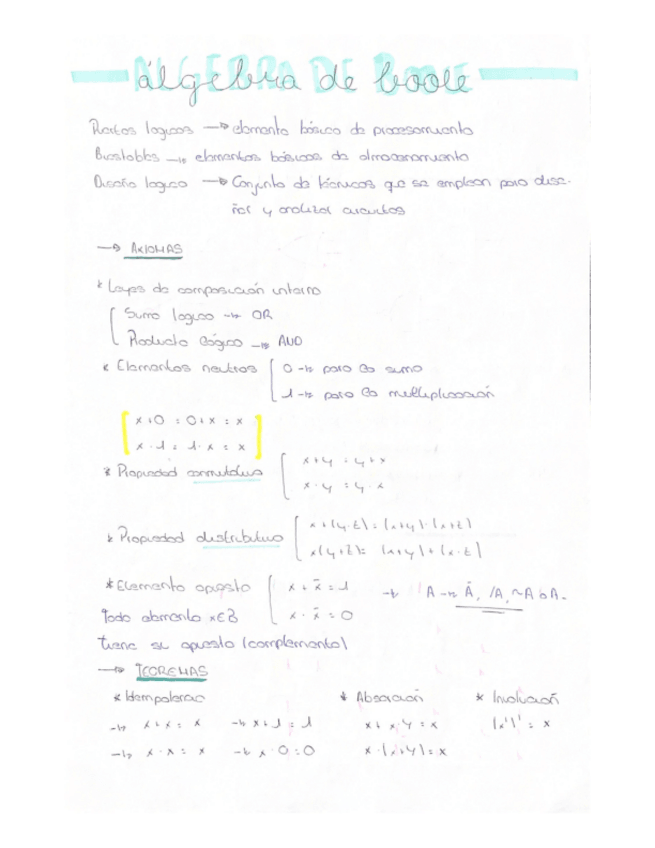 ÁLGEBRA DE BOOLE
álgebra de boole
Puertas logicas → elemento básico de procesamiento
Biestables → elementos básicos de almacenamiento
Diseño logico → Conjunto de técnicas que se emplean para dise-
ñar y analizar circuitos
→ AXIOMAS
* Leyes de composición interna
Suma logica → OR
Producto lógico → AND
* Elementos neutros 0 → para la suma
1 → para la multiplicación
x+0 = 0+x = x
x·1 = 1·x = x
* Propiedad conmutativa x+y = y+x
x·y = y·x
* Propiedad distributiva x+(y·z) = (x+y)·(x+z)
x(y+z) = (x+y)+(x·z)
* Elemento opuesto x + x̄ = 1 → A → Ā, /A, ~A ó A-
Todo elemento x∈B x · x̄ = 0
tiene su opuesto (complemento)
→ TEOREMAS
* Idempotencia * Absorción * Involución
→ x+x = x → x+1 = 1 x+x·y = x (x')' = x
→ x·x = x → x·0 = 0 x·(x+y) = x